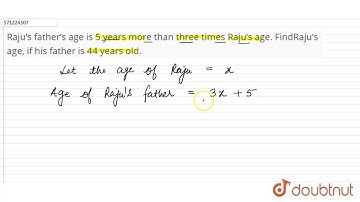 571224307
Raju's father's age is 5 years more than three times Raju's age. FindRaju's
age, if his father is 44 years old.
Let the age of Raju = x
Age of Raju's father = 3x + 5
doubtnut